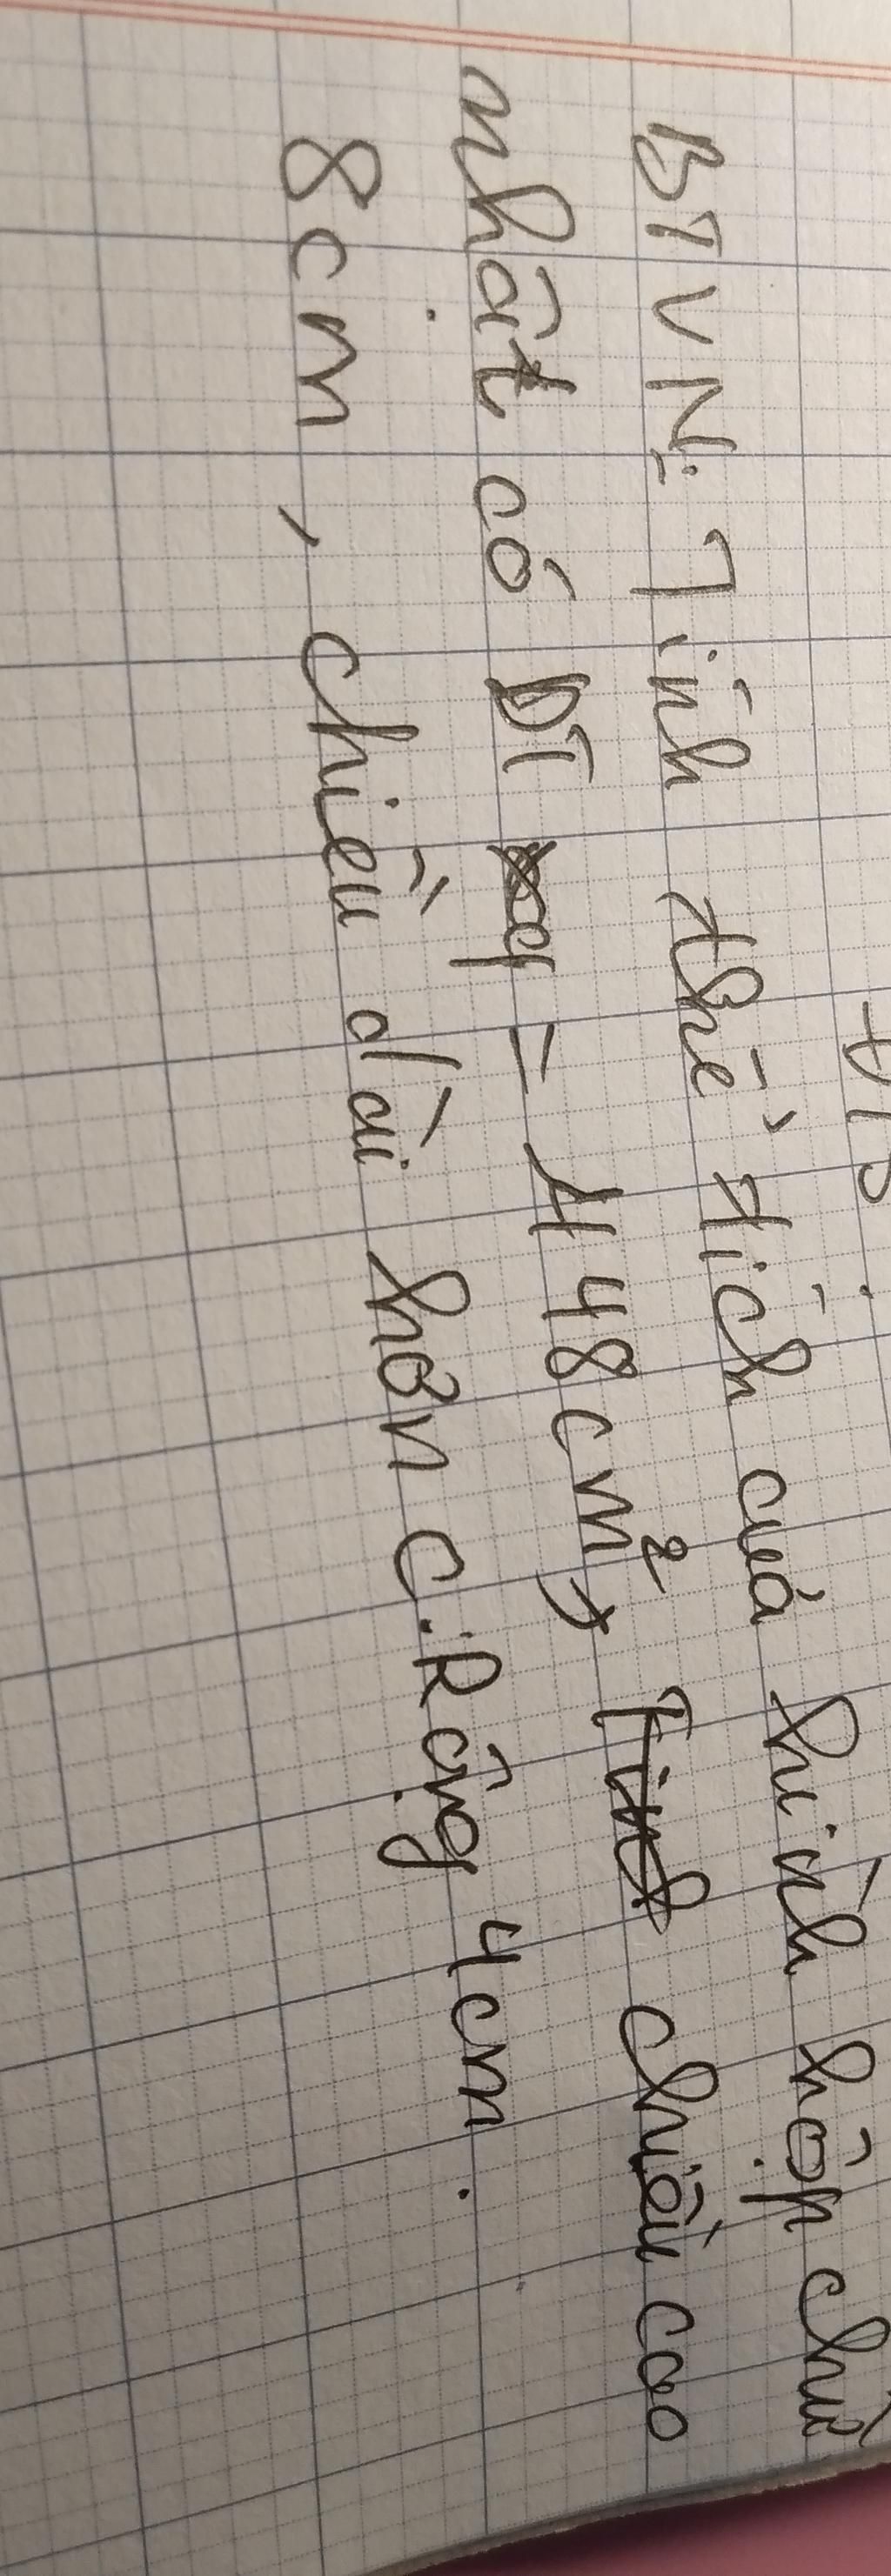 BTVN: Tính thể tích của hình hộp chữ
nhật có DT xq = 448cm², chiều cao
8cm, chiều dài hơn C.Rộng 4cm.